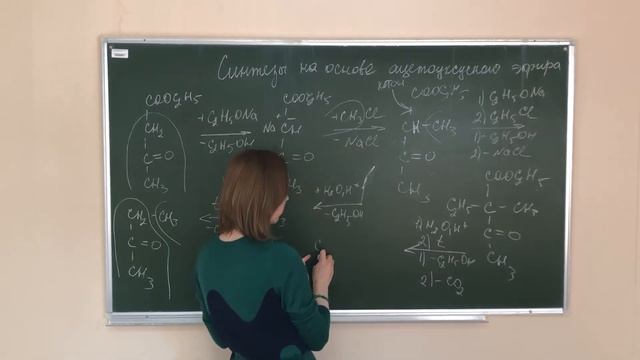 Синтезы на основе ацетоуксусного эфира
COOC₂H₅
CH₂
C=O
CH₃
+C₂H₅ONa
-C₂H₅OH
COOC₂H₅
Na⁺ CH⁻
C=O
CH₃
+CH₃Cl
-NaCl
COOC₂H₅
CH-CH₃
C=O
CH₃
1) C₂H₅ONa
2) C₂H₅Cl
1) -C₂H₅OH
2) -NaCl
COOC₂H₅
C₂H₅-C-CH₃
C=O
CH₃
1) H₂O, H⁺
2) t
1) -C₂H₅OH
2) -CO₂
+H₂O, H⁺
-C₂H₅OH
CH₂-CH₃
C=O
CH₃